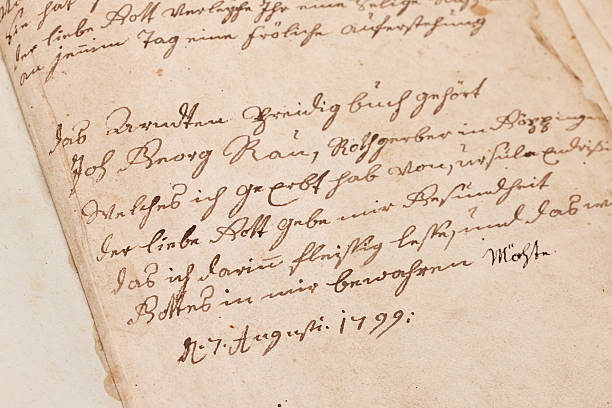 Sie hat
der liebe Gott verleyhe Ihr eine Selige
an jenem Tag eine fröliche auferstehung
das Arndten Predig buch gehört
Joh Georg Rau, Rothgerber in Göppingen
Welches ich geerbt hab von, ursula
der liebe Gott gebe mir Gesundheit
das ich darinn fleissig lesse, und das
Gottes in mir bewahren Möchte.
d. 7. Augusti. 1799: